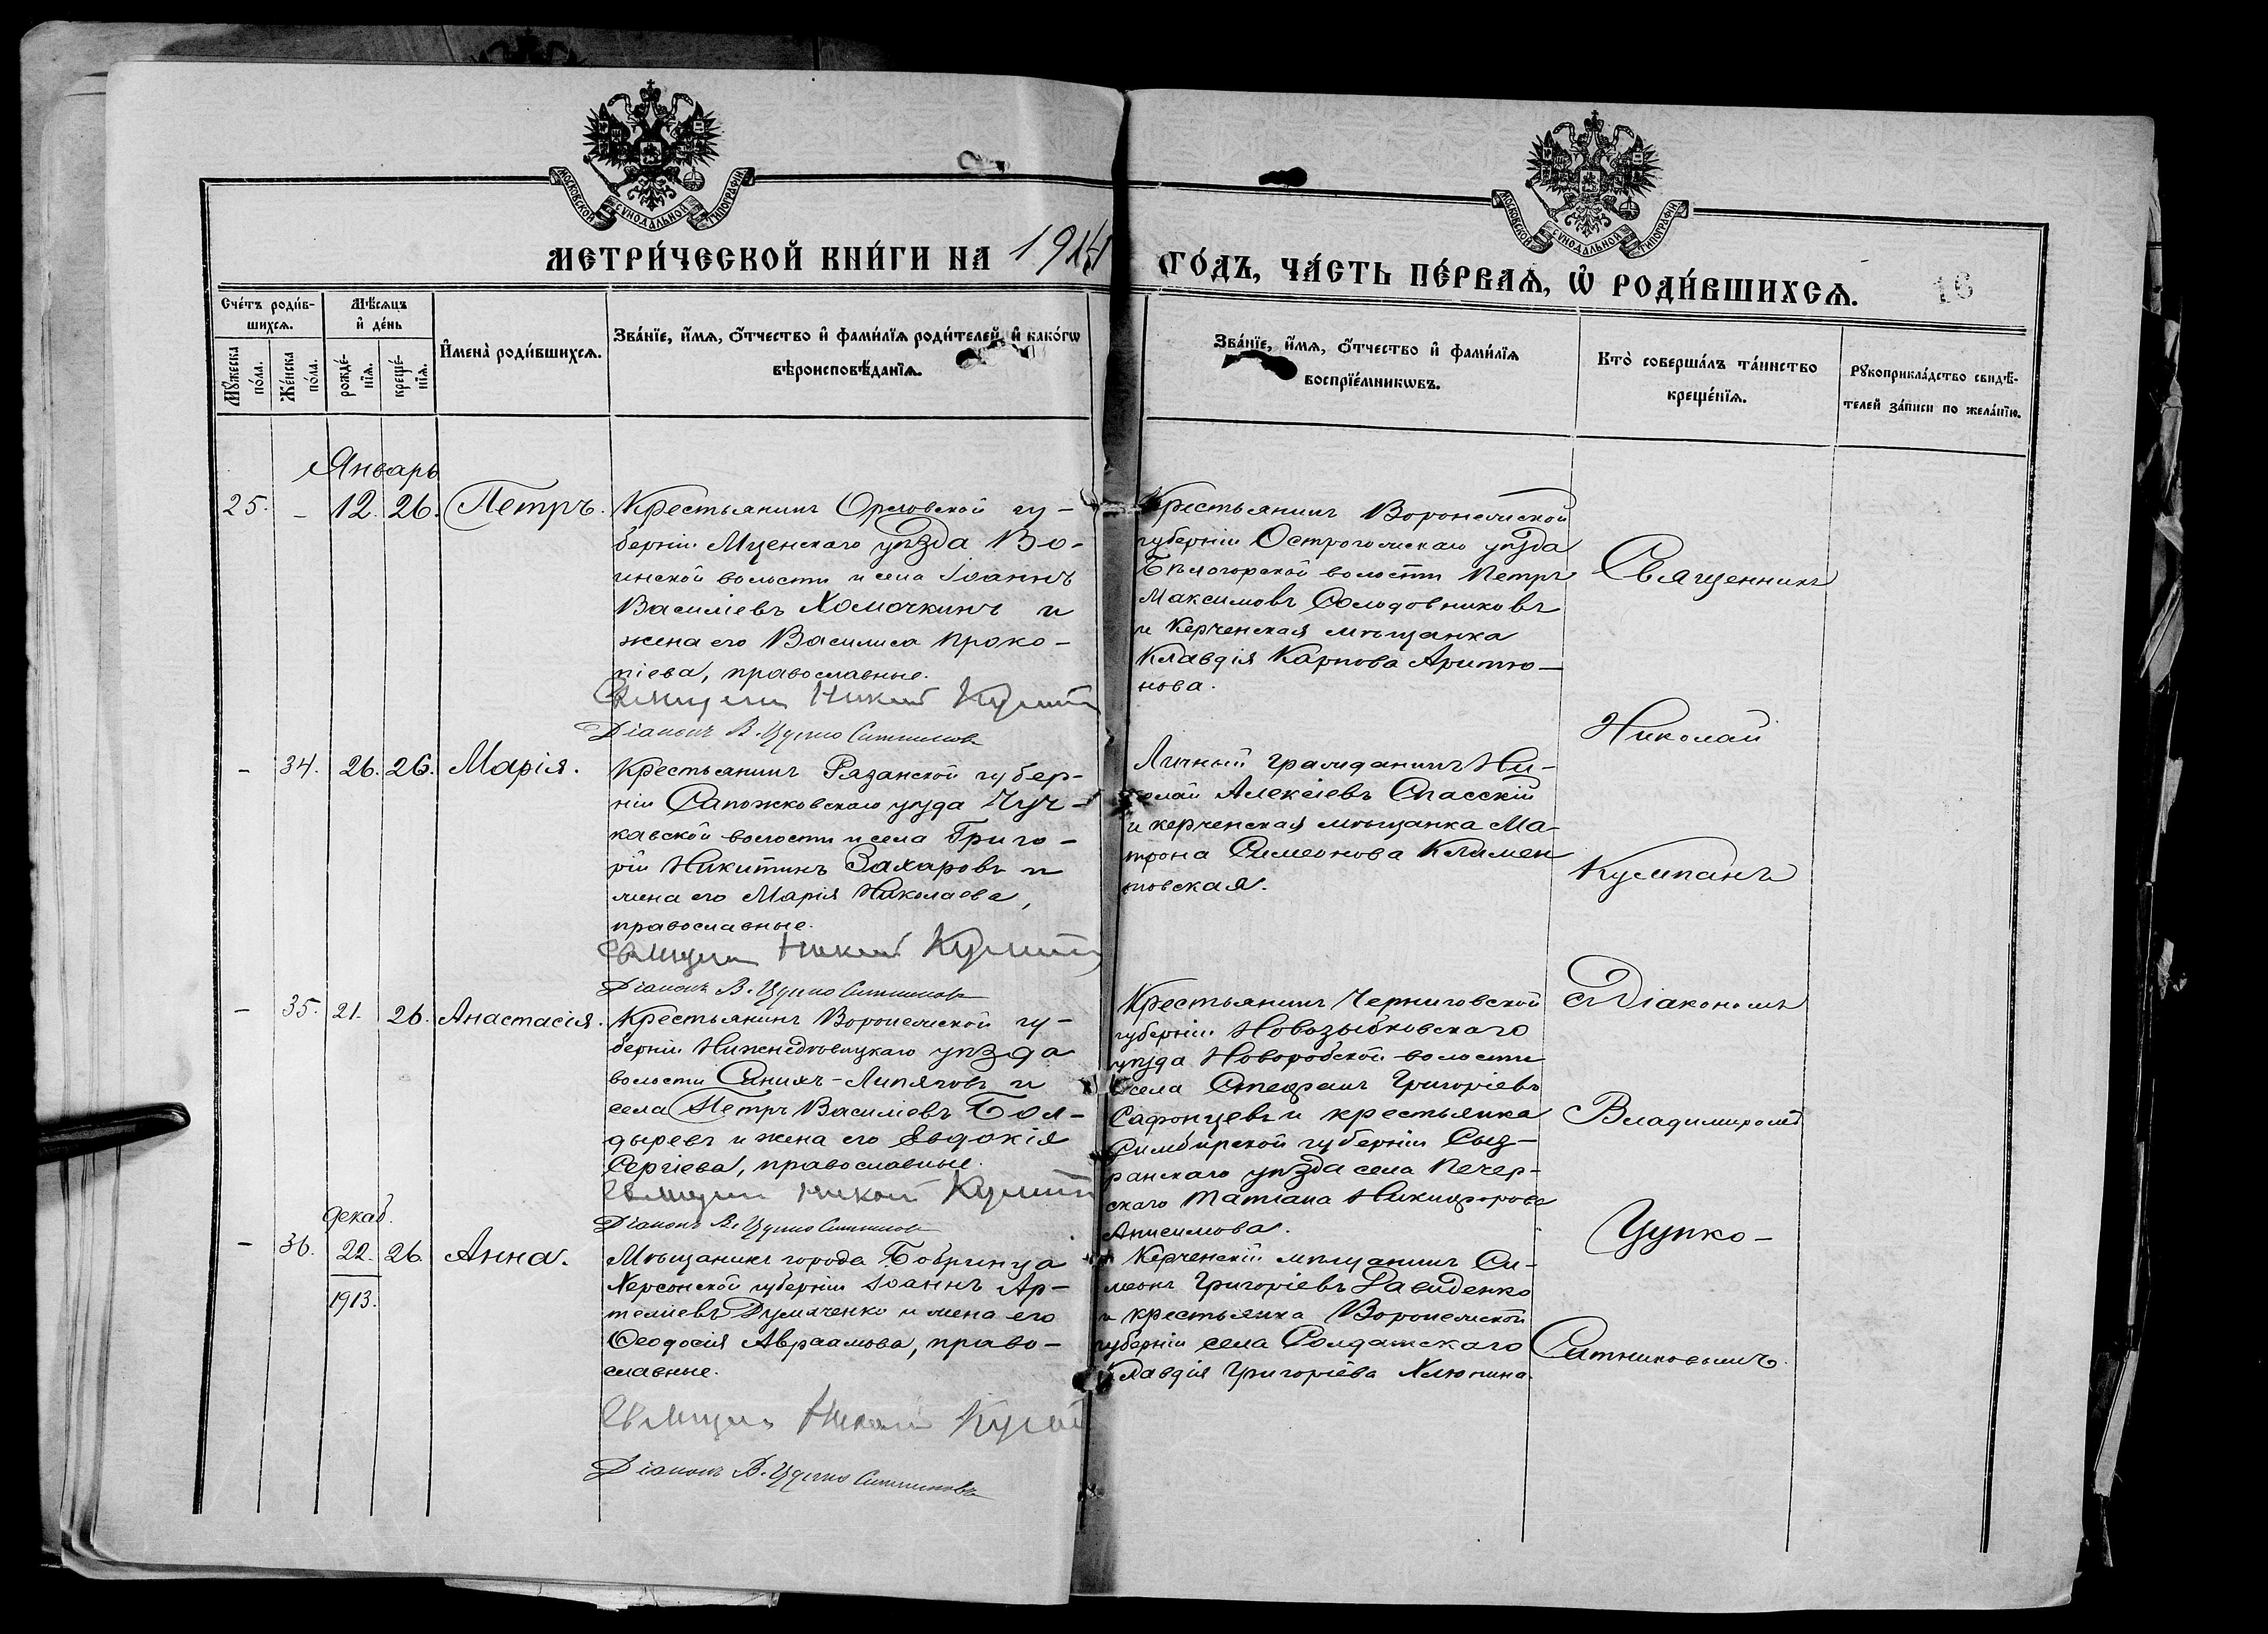 МОСКОВСКОЙ СѴНОДАЛЬНОЙ ТИПОГРАФІИ
МОСКОВСКОЙ СѴНОДАЛЬНОЙ ТИПОГРАФІИ
МЕТРИ́ЧЕСКОЙ КНИ́ГИ НА 1914 ГО́ДЪ, ЧА́СТЬ ПЕ́РВАѦ, Ѡ҆ РОДИ́ВШИХСѦ.
16
Сче́тъ роди́в-
шихсѧ.
Мꙋ́жеска
по́ла.
Же́нска
по́ла.
Мѣ́сѧцъ
и҆ де́нь
рожде́-
нїѧ.
креще́-
нїѧ.
И҆мена̀ роди́вшихсѧ.
Зва́нїе, и҆́мѧ, ѻ҆́тчество и҆ фами́лїѧ роди́телей, и҆ како́гѡ
вѣроисповѣ́данїѧ.
Зва́нїе, и҆́мѧ, ѻ҆́тчество и҆ фами́лїѧ
воспрїе́мникѡвъ.
Кто̀ соверша́лъ та́инство
креще́нїѧ.
Рꙋкоприкла́дство свидѣ́-
телей за́писи по жела́нїю.
Январь
25. - 12. 26. Петръ.
Крестьянинъ Орловской гу-
берніи Мценскаго уѣзда Во-
инской волости и села Іоаннъ
Василіевъ Хомочкинъ и
жена его Василиса Проко-
піева, православные.
Священн Никол Кумпанъ
Діаконъ В. Цупко Ситниковъ
Крестьянинъ Воронежской
губерніи Острогожскаго уѣзда
Бѣлогорской волости Петръ
Максимовъ Солодовниковъ
и Керченская мѣщанка
Клавдія Карпова Аритю-
нова.
- 34. 26. 26. Марія.
Крестьянинъ Рязанской губер-
ніи Сапожковскаго уѣзда Чуч-
кавской волости и села Григо-
рій Никитинъ Захаровъ и
жена его Марія Николаева,
православные.
Священн Никол Кумпанъ
Діаконъ В. Цупко Ситниковъ
Личный гражданинъ Ни-
колай Алексіевъ Спасскій
и керченская мѣщанка Ма-
трона Симеонова Климен
товская.
- 35. 21. 26. Анастасія.
Крестьянинъ Воронежской гу-
берніи Нижнедѣвицкаго уѣзда
волости Синихъ-Липяговъ и
села Петръ Василіевъ Бол-
дыревъ и жена его Евдокія
Сергіева, православные.
Священн Николай Кумпанъ
Діаконъ В. Цупко Ситниковъ
Крестьянинъ Черниговской
губерніи Новозыбковскаго
уѣзда Новоробской волости
села Стефанъ Григоріевъ
Сафонцевъ и крестьянка
Симбирской губерніи Сыз-
ранскаго уѣзда села Печер-
скаго Татіана Никифорова
Анисимова.
декаб.
- 36. 22. 26. Анна.
1913.
Мѣщанинъ города Бобринца
Херсонской губерніи Іоаннъ Ар-
теміевъ Думаченко и жена его
Ѳеодосія Авраамова, право-
славные.
Священн Николай Кумпан
Діаконъ В. Цупко Ситниковъ
Керченскій мѣщанинъ Си-
меонъ Григоріевъ Давиденко
и крестьянка Воронежской
губерніи села Солдатскаго
Клавдія Григоріева Хлюпина.
Священникъ
Николай
Кумпанъ
съ Діакономъ
Владимиромъ
Цупко-
Ситниковымъ.